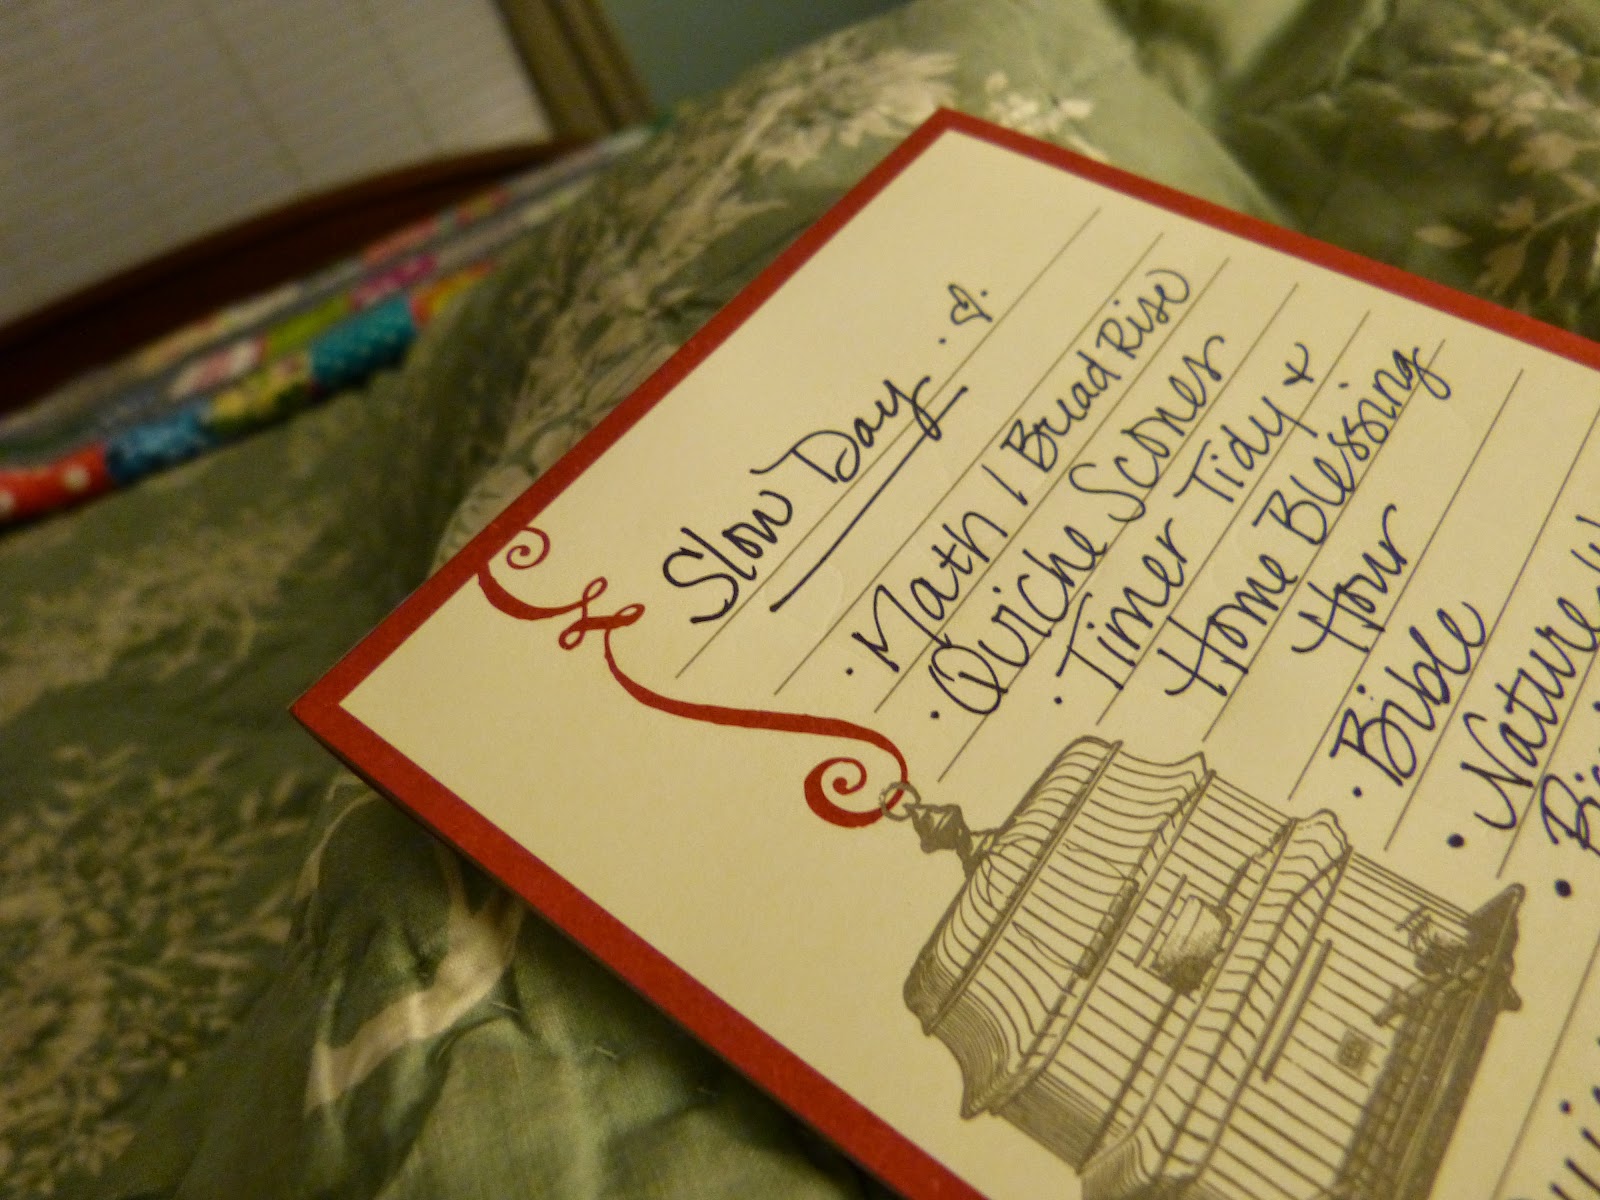 Slow Day . ♡.
· Math / Bread Rise
· Quiche Scones
· Timer Tidy +
Home Blessing
Hour
· Bible
· Nature
·